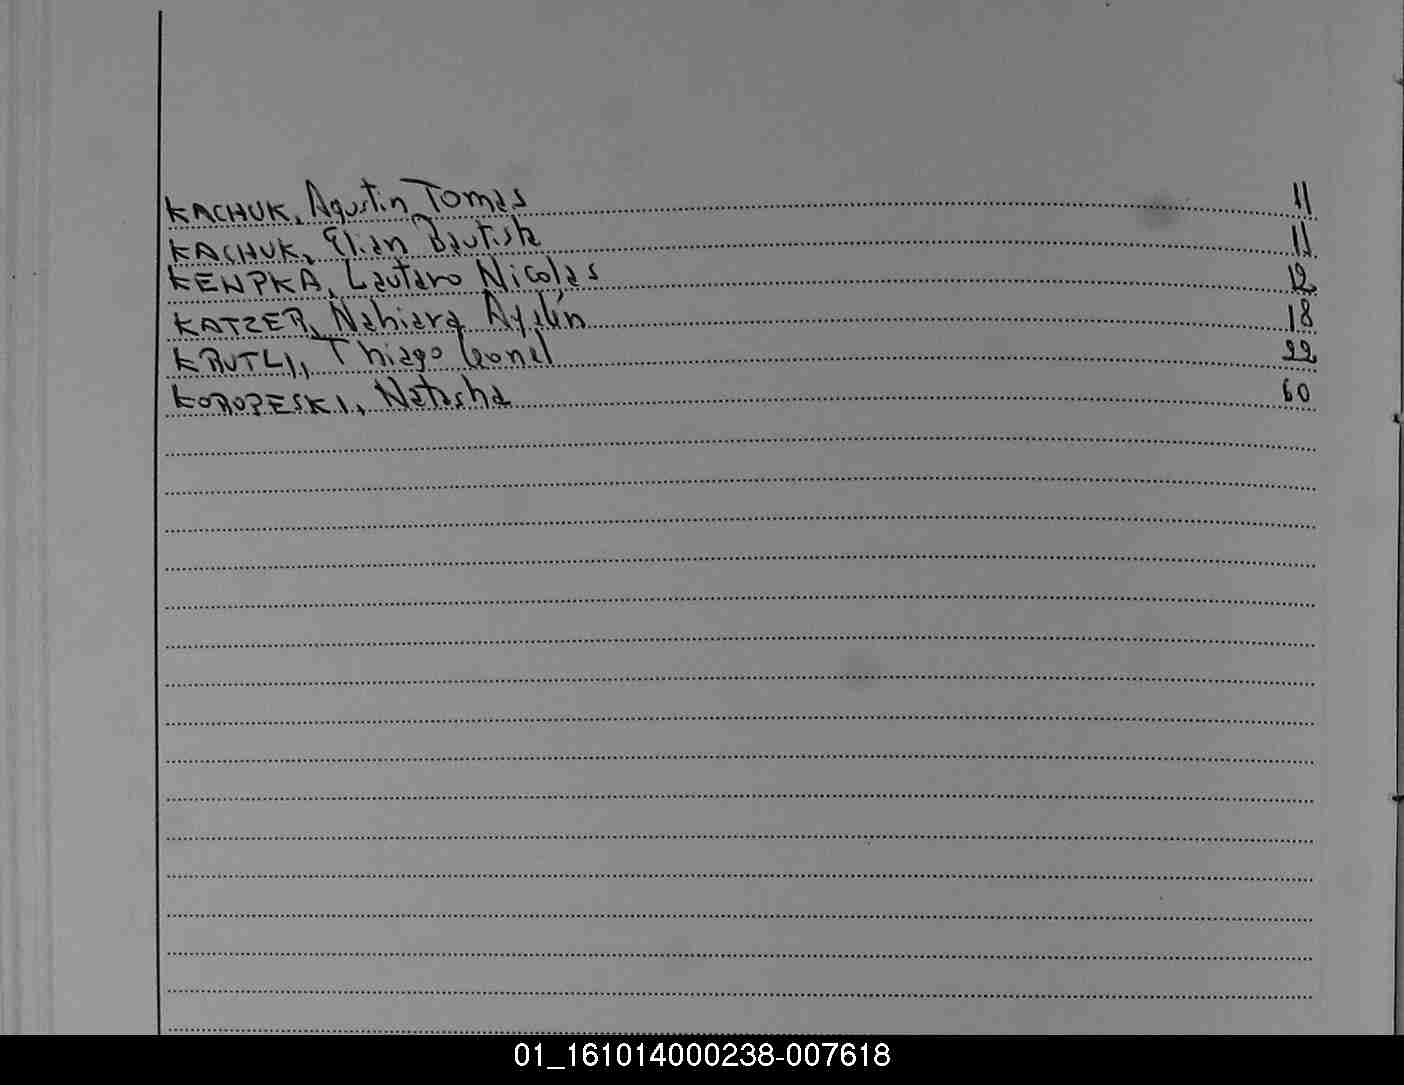 KACHUK, Agustin Tomas 11
KACHUK, Elian Bautista 11
KENPKA, Lautaro Nicolas 12
KATZER, Nahiara Aylín 18
KRUTLI, Thiago Leonel 22
KOROPESKI, Natasha 60
01_161014000238-007618